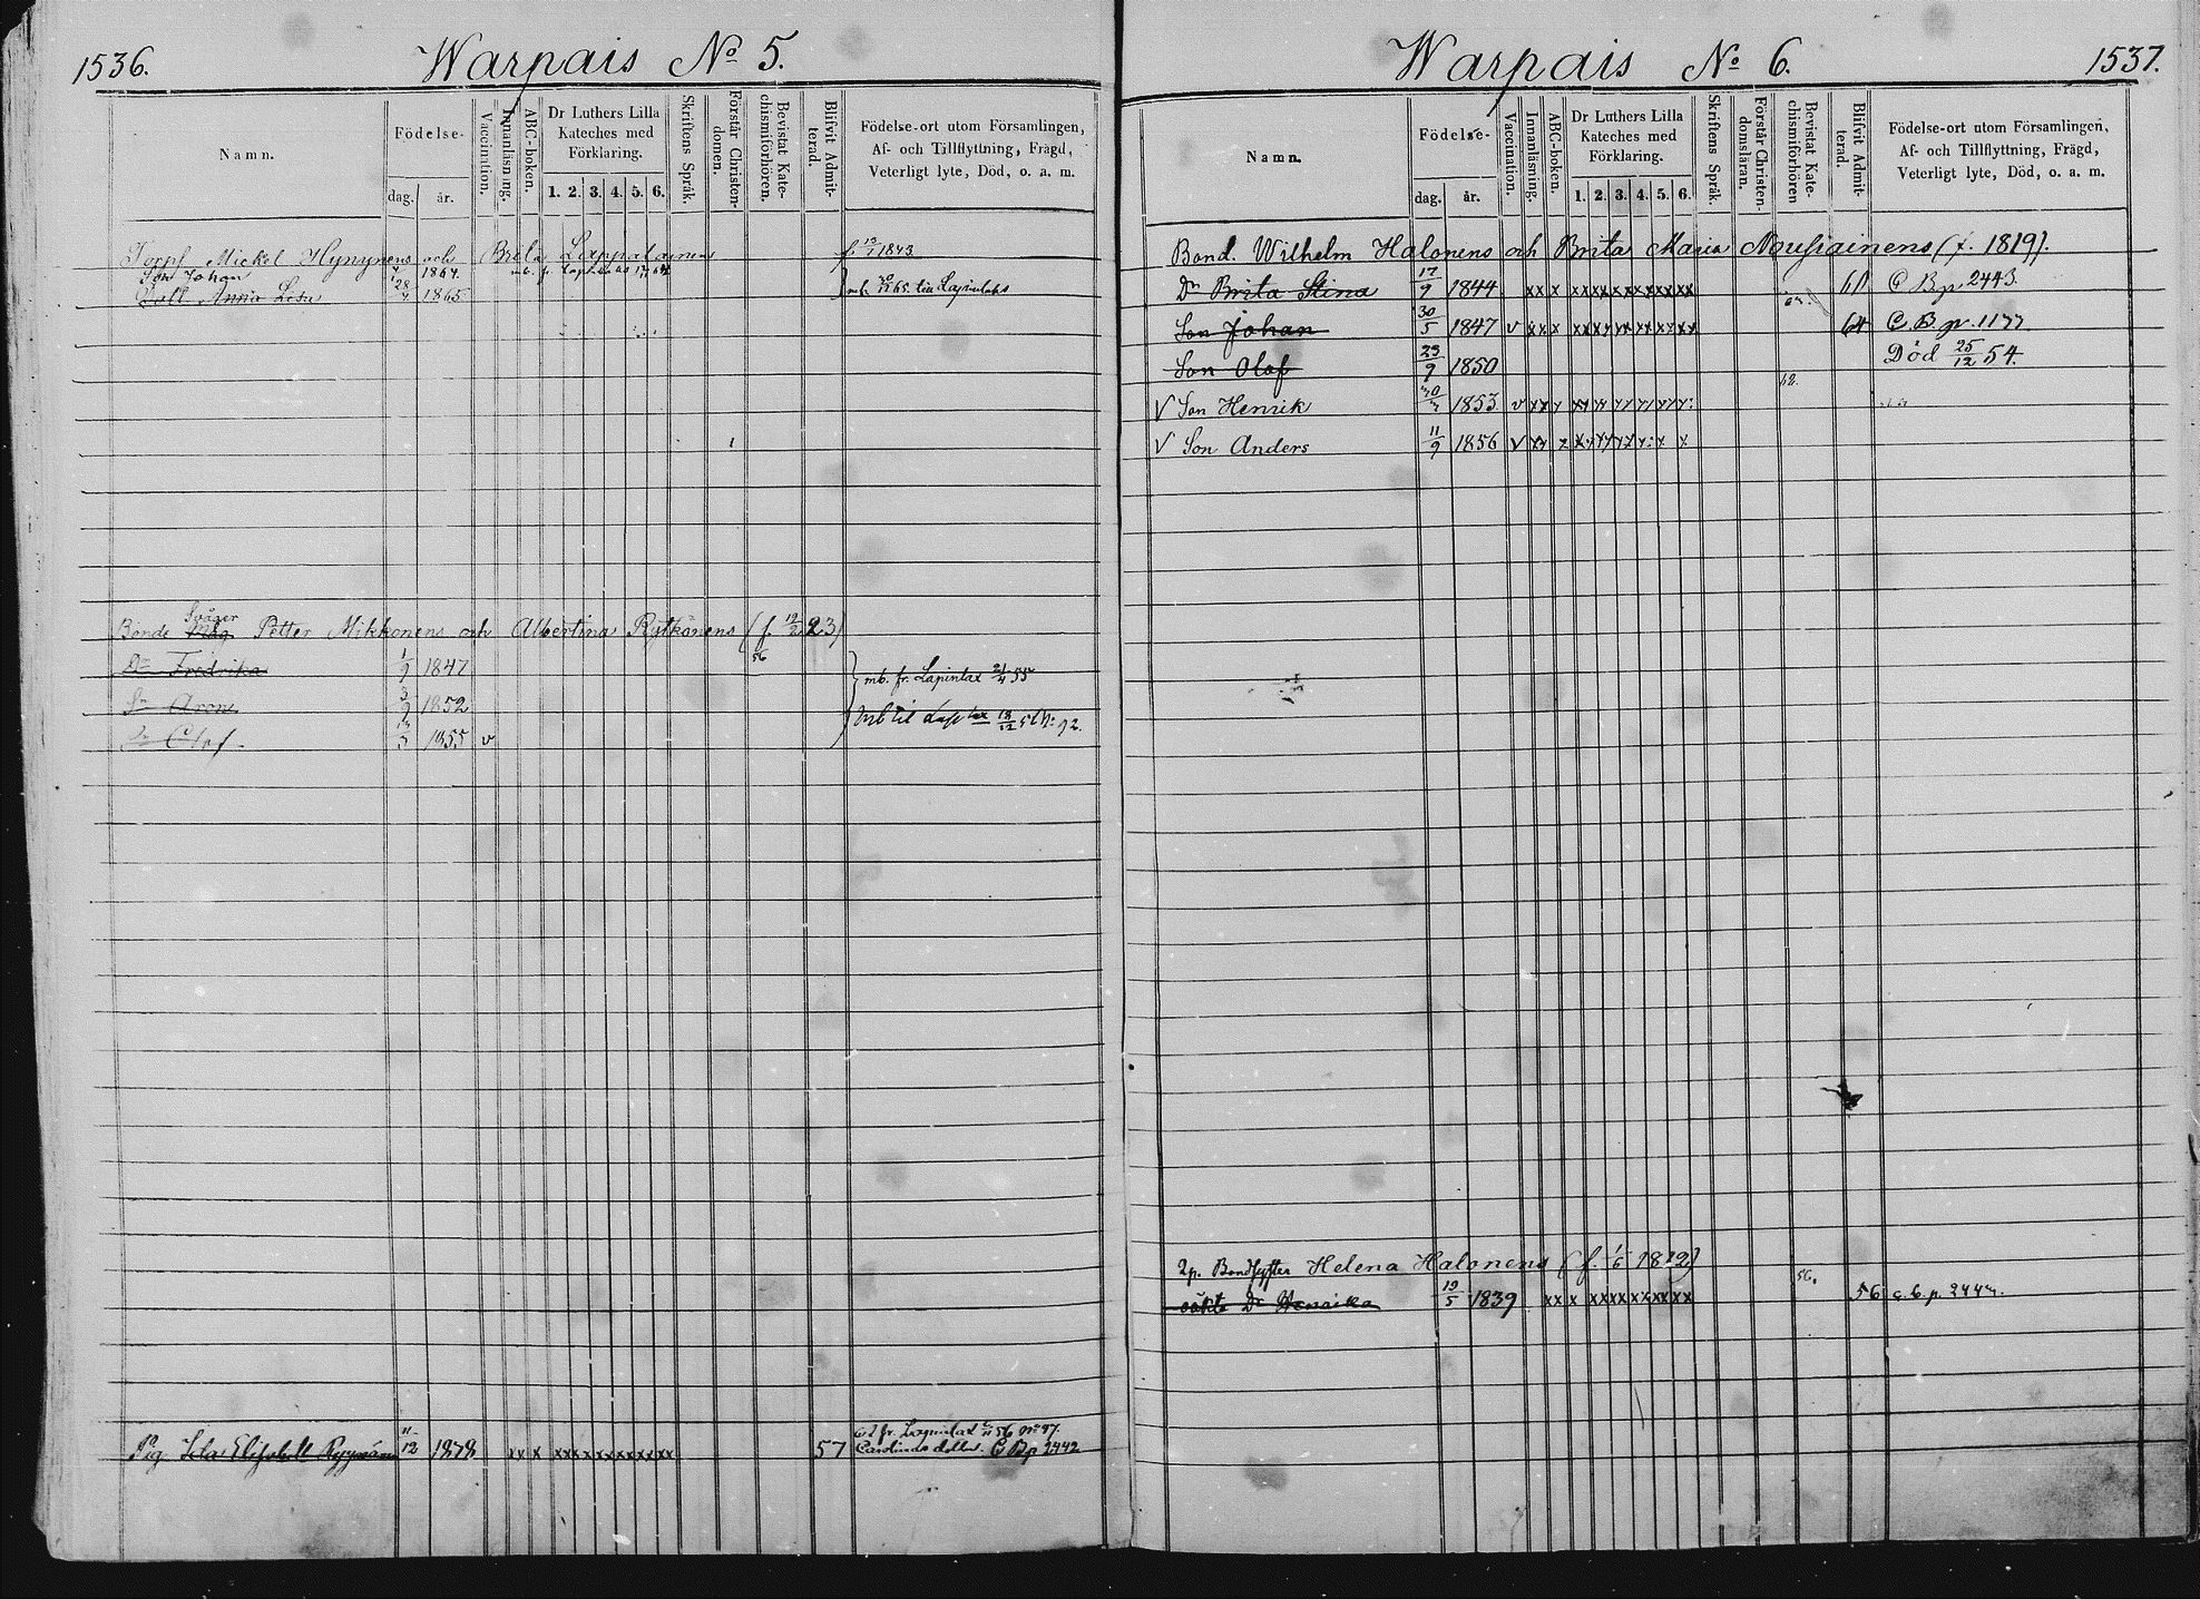 1536.
Warpais No 5.
Namn.
Födelse-
dag.
år.
Vaccination.
Innanläsning.
ABC-boken.
Dr Luthers Lilla
Kateches med
Förklaring.
1. 2. 3. 4. 5. 6.
Skriftens Språk.
Förstår Christen-
domen.
Bevistat Kate-
chismiförhören.
Blifvit Admit-
terad.
Födelse-ort utom Församlingen,
Af- och Tillflyttning, Frägd,
Veterligt lyte, Död, o. a. m.
Torpf Mickel Hynynens och Brita Lappalainens f. 1843
Son Johan 1864.
Anna Lisa 28 1865 mb. 65 till Lapinlaks
Bonde Måg Svåger Petter Mikkonens och Albertina Rytkönens (f. 19/2 23)
56
Dr Fredrika 1/9 1847 mb. fr. Lapinlax 21/4 55
Sn Aron 3/9 1852
Olof 1855 v
Pig Elisabeth 11/12 1838 xx x xx xx xx xx xx xx 57 Carolinas dotter. C B p 2442
1537.
Warpais No 6.
Namn.
Födelse-
dag.
år.
Vaccination.
Innanläsning.
ABC-boken.
Dr Luthers Lilla
Kateches med
Förklaring.
1. 2. 3. 4. 5. 6.
Skriftens Språk.
Förstår Christen-
domsläran.
Bevistat Kate-
chismiförhören
Blifvit Admit-
terad.
Födelse-ort utom Församlingen,
Af- och Tillflyttning, Frägd,
Veterligt lyte, Död, o. a. m.
Bond. Wilhelm Halonens och Brita Maria Nousiainens (f. 1819).
Dr Brita Stina 17/9 1844 xx x xx xx xx xx xx xx C B p 2443.
Son Johan 30/5 1847 v xx x xx xx xx xx xx xx 64 C. B. p. 1177
Son Olof 23/9 1850 Död 25/12 54.
62.
V Son Henrik 1853. v xx x xx xx xx xx xx x
V Son Anders 11/9 1856 v xx x xx xx xx x x x
Helena Halonens (f. 1/6 1812)
56.
oäkta Dr Henrika 19/5 1839 xx x xx xx xx xx xx xx 56 c. b. p.